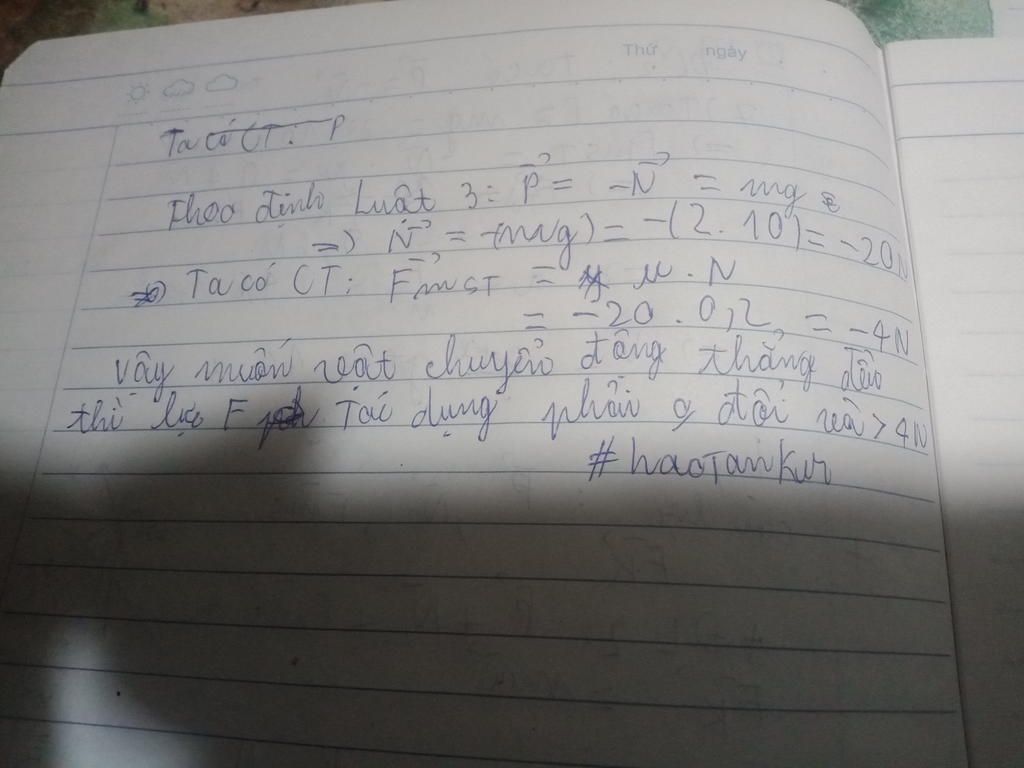 Thứ ngày
Ta có CT: P
Theo định Luật 3: P = -N = mg
=> N = -(mg) = -(2. 10) = -20N
=> Ta có CT: FmsT = μ . N
= -20 . 0,2 = -4N
Vậy muốn vật chuyển động thẳng đều
thì lực F Tác dụng phải đổi và > 4N
#haoTanKur